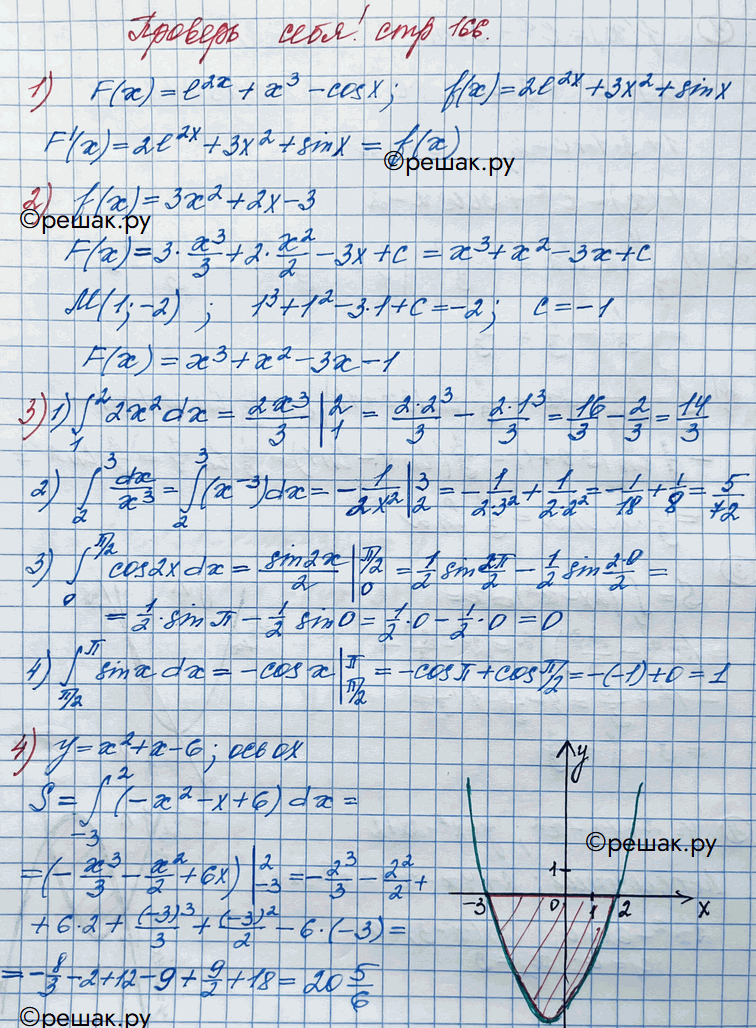 Проверь себя! стр 166.
1) F(x) = e^{2x} + x^3 - cosx; f(x) = 2e^{2x} + 3x^2 + sinx
F'(x) = 2e^{2x} + 3x^2 + sinx = f(x)
©решак.ру
2) f(x) = 3x^2 + 2x - 3
©решак.ру
F(x) = 3·x^3/3 + 2·x^2/2 - 3x + c = x^3 + x^2 - 3x + c
M(1; -2) ; 1^3 + 1^2 - 3·1 + c = -2; c = -1
F(x) = x^3 + x^2 - 3x - 1
3) 1) ∫_1^2 2x^2 dx = 2x^3/3 |_1^2 = 2·2^3/3 - 2·1^3/3 = 16/3 - 2/3 = 14/3
2) ∫_2^3 dx/x^3 = ∫_2^3 (x^{-3})dx = -1/2x^2 |_2^3 = -1/2·3^2 + 1/2·2^2 = -1/18 + 1/8 = 5/72
3) ∫_0^{π/2} cos2x dx = sin2x/2 |_0^{π/2} = 1/2 sin 2π/2 - 1/2 sin 2·0/2 =
= 1/2·sinπ - 1/2 sin0 = 1/2·0 - 1/2·0 = 0
4) ∫_{π/2}^π sinx dx = -cosx |_{π/2}^π = -cosπ + cosπ/2 = -(-1) + 0 = 1
4) y = x^2 + x - 6; ось ox
S = ∫_{-3}^2 (-x^2 - x + 6) dx =
= (-x^3/3 - x^2/2 + 6x) |_{-3}^2 = -2^3/3 - 2^2/2 +
+ 6·2 + (-3)^3/3 + (-3)^2/2 - 6·(-3) =
= -8/3 - 2 + 12 - 9 + 9/2 + 18 = 20 5/6
y
©решак.ру
1
-3 0 1 2 x
©решак.ру